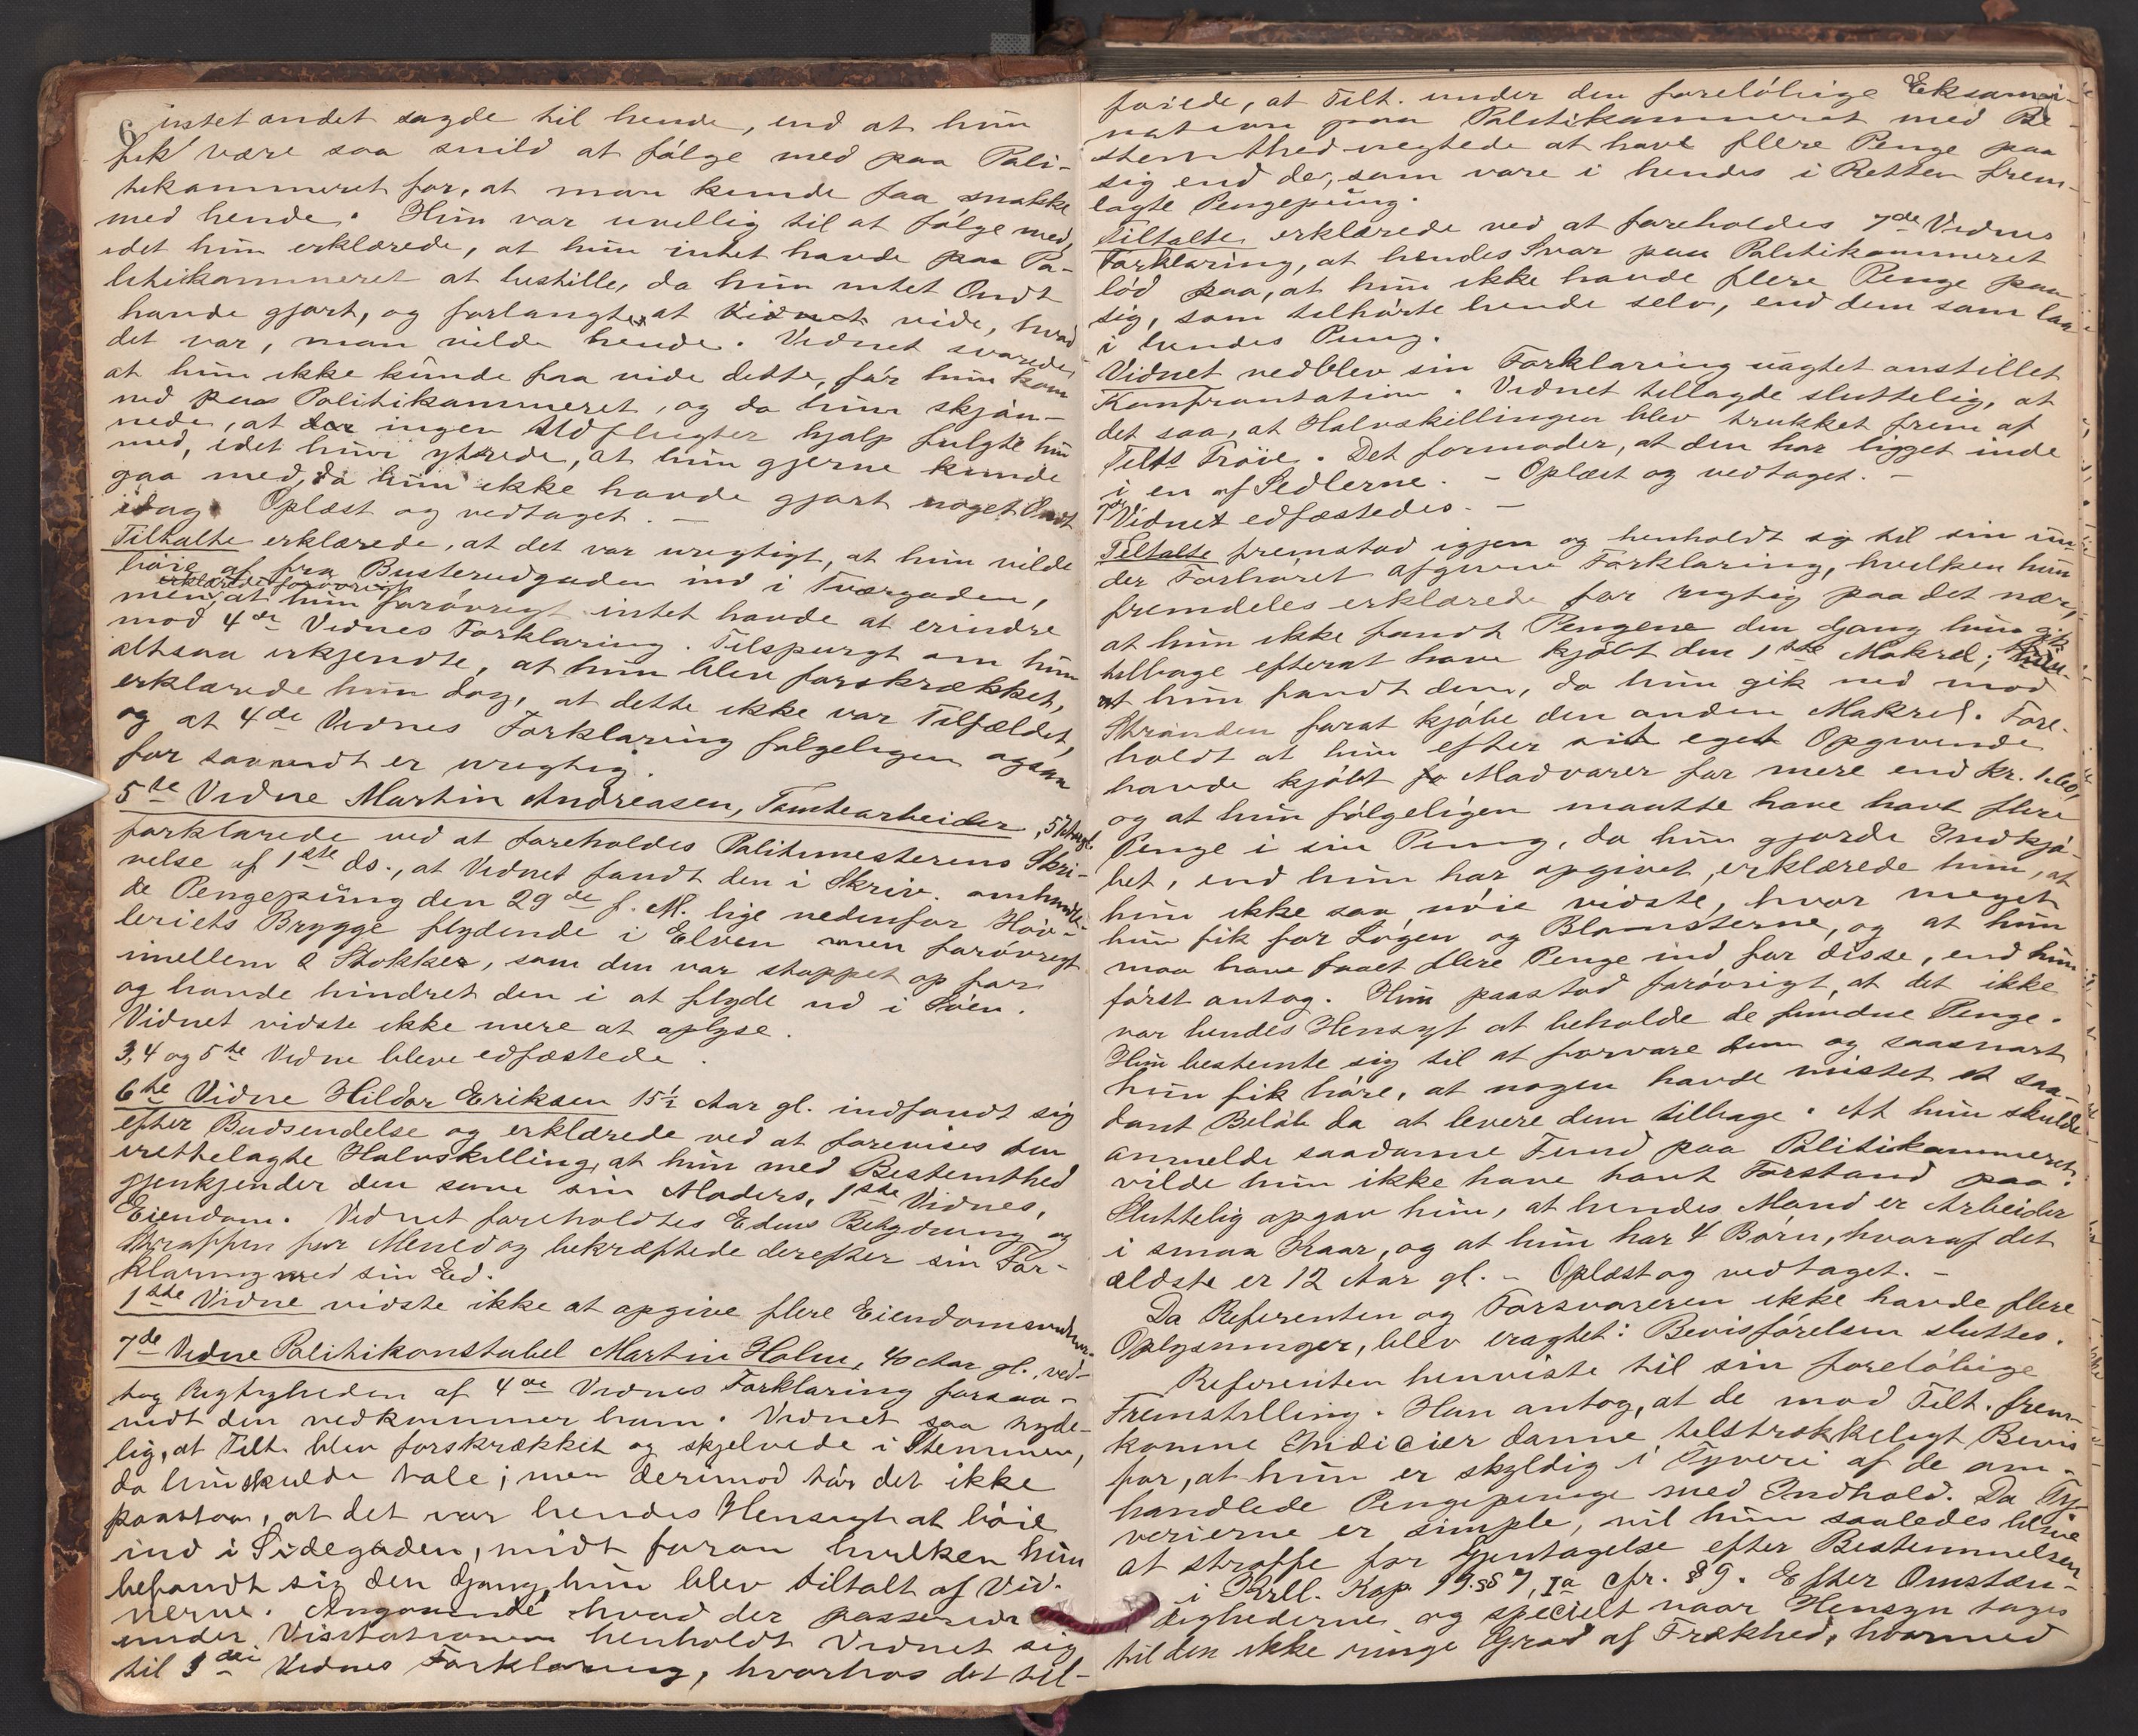 6
intet andet sagde til hende, end at hun
fik være saa snild at følge med paa Poli-
tikammeret for, at man kunde faa snakke
med hende. Hun var uvillig til at følge med,
idet hun erklærede, at hun intet havde paa Po-
litikammeret at bestille, da hun intet Ondt
havde gjort, og forlangte at vide, hvad
det var, man vilde hende. Vidnet svarede,
at hun ikke kunde faa vide dette, før hun kom
ned paa Politikammeret, og da hun skjøn-
nede, at ingen Udflugter hjalp fulgte hun
med, idet hun ytrede, at hun gjerne kunde
gaa med, da hun ikke havde gjort noget Ondt
idag. Oplæst og vedtaget. —
Tiltalte erklærede, at det var urigtigt, at hun vilde
bøie af fra Busterudgaden ind i Tværgaden,
erklærede forøvrigt
men, at hun forøvrigt intet havde at erindre
mod 4de Vidnes Forklaring. Tilspurgt om hun
altsaa erkjendte, at hun blev forskrækket,
erklærede hun dog, at dette ikke var Tilfældet,
og at 4de Vidnes Forklaring følgeligen ogsaa
for saavidt er urigtig.
5te Vidne Martin Andreasen, Tomtearbeider,
forklarede ved at foreholdes Politimesterens Skri-
velse af 1ste ds., at Vidnet fandt den i Skriv. omhandle-
de Pengepung den 29de f. M. lige nedenfor Høv-
leriets Brygge flydende i Elven men forøvrigt
imellem 2 Stokker, som den var stoppet op for
og havde hindret den i at flyde ud i Søen.
Vidnet vidste ikke mere at oplyse.
3, 4 og 5te Vidne bleve edfæstede.
6te Vidne Hildor Eriksen 15½ Aar gl. indfandt sig
efter Budsendelse og erklærede ved at forevises den
irettelagte Halvskilling, at hun med Bestemthed
gjenkjender den som sin Moders, 1ste Vidnes,
Eiendom. Vidnet foreholdtes Edens Betydning og
Straffen for Mened og bekræftede derefter sin For-
klaring med sin Ed.
1ste Vidne vidste ikke at opgive flere Eiendomsvidner.
7de Vidne Politikonstabel Martin Holm, 40 Aar gl., ved-
tog Rigtigheden af 4de Vidnes Forklaring forsaa-
vidt den vedkommer ham. Vidnet saa tyde-
lig, at Tilt. blev forskrækket og skjelvede i Stemmen,
da hun skulde tale; men derimod tør det ikke
paastaa, at det var hendes Hensigt at bøie
ind i Sidegaden, midt foran hvilken hun
befandt sig den Gang, hun blev tiltalt af Vid-
nerne. Angaaende hvad der passerede
under Visitationen henholdt Vidnet sig
til 3die Vidnes Forklaring, hvorhos det til-
føiede, at Tilt. under den foreløbige Eksami-
nation paa Politikammeret med Be-
stemthed negtede at have flere Penge paa
sig end de, som vare i hendes i Retten frem-
lagte Pengepung.
Tiltalte erklærede ved at foreholdes 7de Vidnes
Forklaring, at hendes Svar paa Politikammeret
lød paa, at hun ikke havde flere Penge paa
sig, som tilhørte hende selv, end dem som laa
i hendes Pung.
Vidnet vedblev sin Forklaring uagtet anstillet
Konfrontation. Vidnet tillagde sluttelig, at
det saa, at Halvskillingen blev trukket frem af
Tilts Trøie. Det formoder, at den har ligget inde
i en af Sedlerne. - Oplæst og vedtaget. -
7de Vidnet edfæstedes. -
Tiltalte fremstod igjen og henholdt sig til sin un-
der Forhøret afgivne Forklaring, hvilken hun
fremdeles erklærede for rigtig paa det nær,
at hun ikke fandt Pengene den Gang hun gik
tilbage efterat have kjøbt den 1ste Makrel;
at hun fandt dem, da hun gik ned mod
Stranden forat kjøbe den anden Makrel. Fore-
holdt at hun efter sit eget Opgivende
havde kjøbt Madvarer for mere end Kr. 1.60,
og at hun følgeligen maatte have havt flere
Penge i sin Pung, da hun gjorde Indkjø-
bet, end hun har opgivet, erklærede hun, at
hun ikke saa nøie vidste, hvor meget
hun fik for Løgen og Blomsterne, og at hun
maa have faaet flere Penge ind for disse, end hun
først antog. Hun paastod forøvrigt, at det ikke
var hendes Hensigt at beholde de fundne Penge.
Hun bestemte sig til at forvare dem og saasnart
hun fik høre, at nogen havde mistet et saa-
dant Beløb da at levere dem tilbage. At hun skulde
anmelde saadanne Fund paa Politikammeret,
vilde hun ikke have havt Forstand paa.
Sluttelig opgav hun, at hendes Mand er Arbeider
i smaa Kaar, og at hun har 4 Børn, hvoraf det
ældste er 12 Aar gl. - Oplæst og vedtaget. -
Da Referenten og Forsvareren ikke havde flere
Oplysninger, blev eragtet: Bevisførelsen sluttes.
Referenten henviste til sin foreløbige
Fremstilling. Han antog, at de mod Tilt. frem-
komne Indicier danne tilstrækkeligt Bevis
for, at hun er skyldig i Tyveri af de om-
handlede Pengepunge med Indhold. Da Ty-
verierne er simple, vil hun saaledes blive
at straffe for Gjentagelse efter Bestemmelsen
i Krll. Kap. 19. §§ 7, 1a cfr. § 9. Efter Omstæn-
dighederne og specielt naar Hensyn tages
til den ikke ringe Grad af Frækhed, hvormed